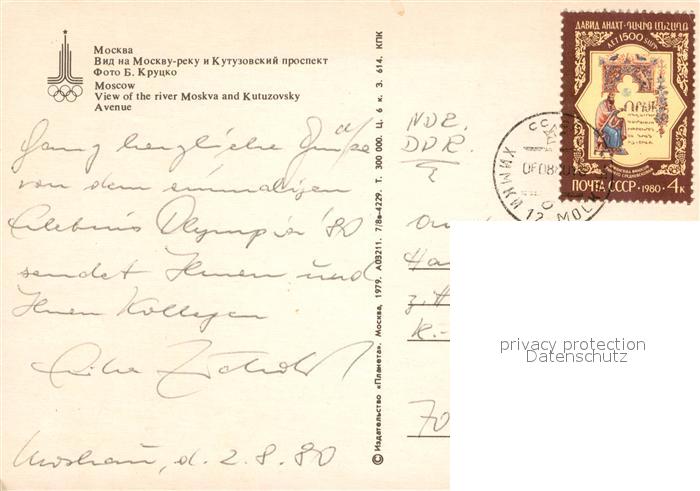 Москва
Вид на Москву-реку и Кутузовский проспект
Фото Б. Круцко
Moscow
View of the river Moskva and Kutuzovsky
Avenue
Ganz herzliche Grüße
von dem einmaligen
Erlebnis Olympia '80
sendet Ihnen und
Ihren Kollegen
Moskau, d. 2.8.80
© Издательство «Планета». Москва, 1979. А03211. 7/8в-4229. Т. 300 000. Ц. 6 к. З. 614. КПК
DDR
ДАВИД АНАХТ · ԴԱՎԻԹ ԱՆՀԱՂԹ
ЛЕТ 1500
ПОЧТА СССР · 1980 · 4к
privacy protection
Datenschutz